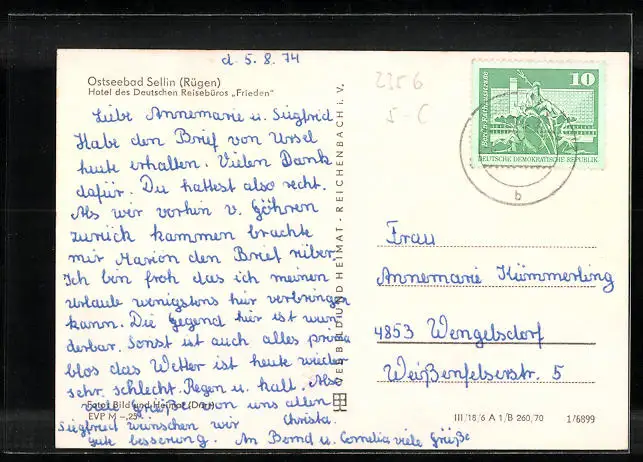 d. 5. 8. 74
Ostseebad Sellin (Rügen)
Hotel des Deutschen Reisebüros „Frieden"
Liebe Annemarie u. Siegfried
Habe den Brief von Ursel
heute erhalten. Vielen Dank
dafür. Du hattest also recht.
Als wir vorhin v. Göhren
zurück kammen brachte
mir Marion den Brief rüber.
Ich bin froh das ich meinen
Urlaub wenigstens hier verbringen
kann. Die Gegend hier ist wun
derbar. Sonst ist auch alles prima
blos das Wetter ist heute wieder
sehr schlecht. Regen u. kalt. Also
viele Grüße von uns allen
Christa.
Siegfried wünschen wir
gute besserung. An Bernd u. Cornelia viele Grüße
Foto: Bild und Heimat
EVP M –,25
VERLAG BILD UND HEIMAT · REICHENBACH i. V.
2356
5-C
10
DEUTSCHE DEMOKRATISCHE REPUBLIK
b
Frau
Annemarie Kümmerling
4853 Wengelsdorf
Weißenfelserstr. 5
III/18/6 A 1/B 260/70 1/6899